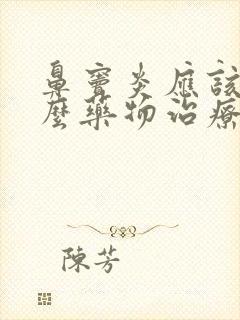 鼻竇炎應該
麼藥物治療
陳芳